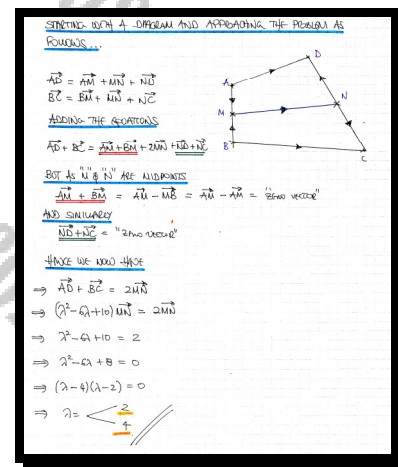 STARTING WITH A DIAGRAM AND APPROACHING THE PROBLEM AS
FOLLOWS...
AD = AM + MN + ND
BC = BM + MN + NC
ADDING THE EQUATIONS
AD + BC = AM + BM + 2MN + ND + NC
BUT AS "M" & "N" ARE MIDPOINTS
AM + BM = AM - MB = AM - AM = "ZERO VECTOR"
AND SIMILARLY
ND + NC = "ZERO VECTOR"
HENCE WE NOW HAVE
⇒ AD + BC = 2MN
⇒ (λ²-6λ+10)MN = 2MN
⇒ λ²-6λ+10 = 2
⇒ λ²-6λ+8 = 0
⇒ (λ-4)(λ-2) = 0
⇒ λ = 2
4
D
A
N
M
B
C